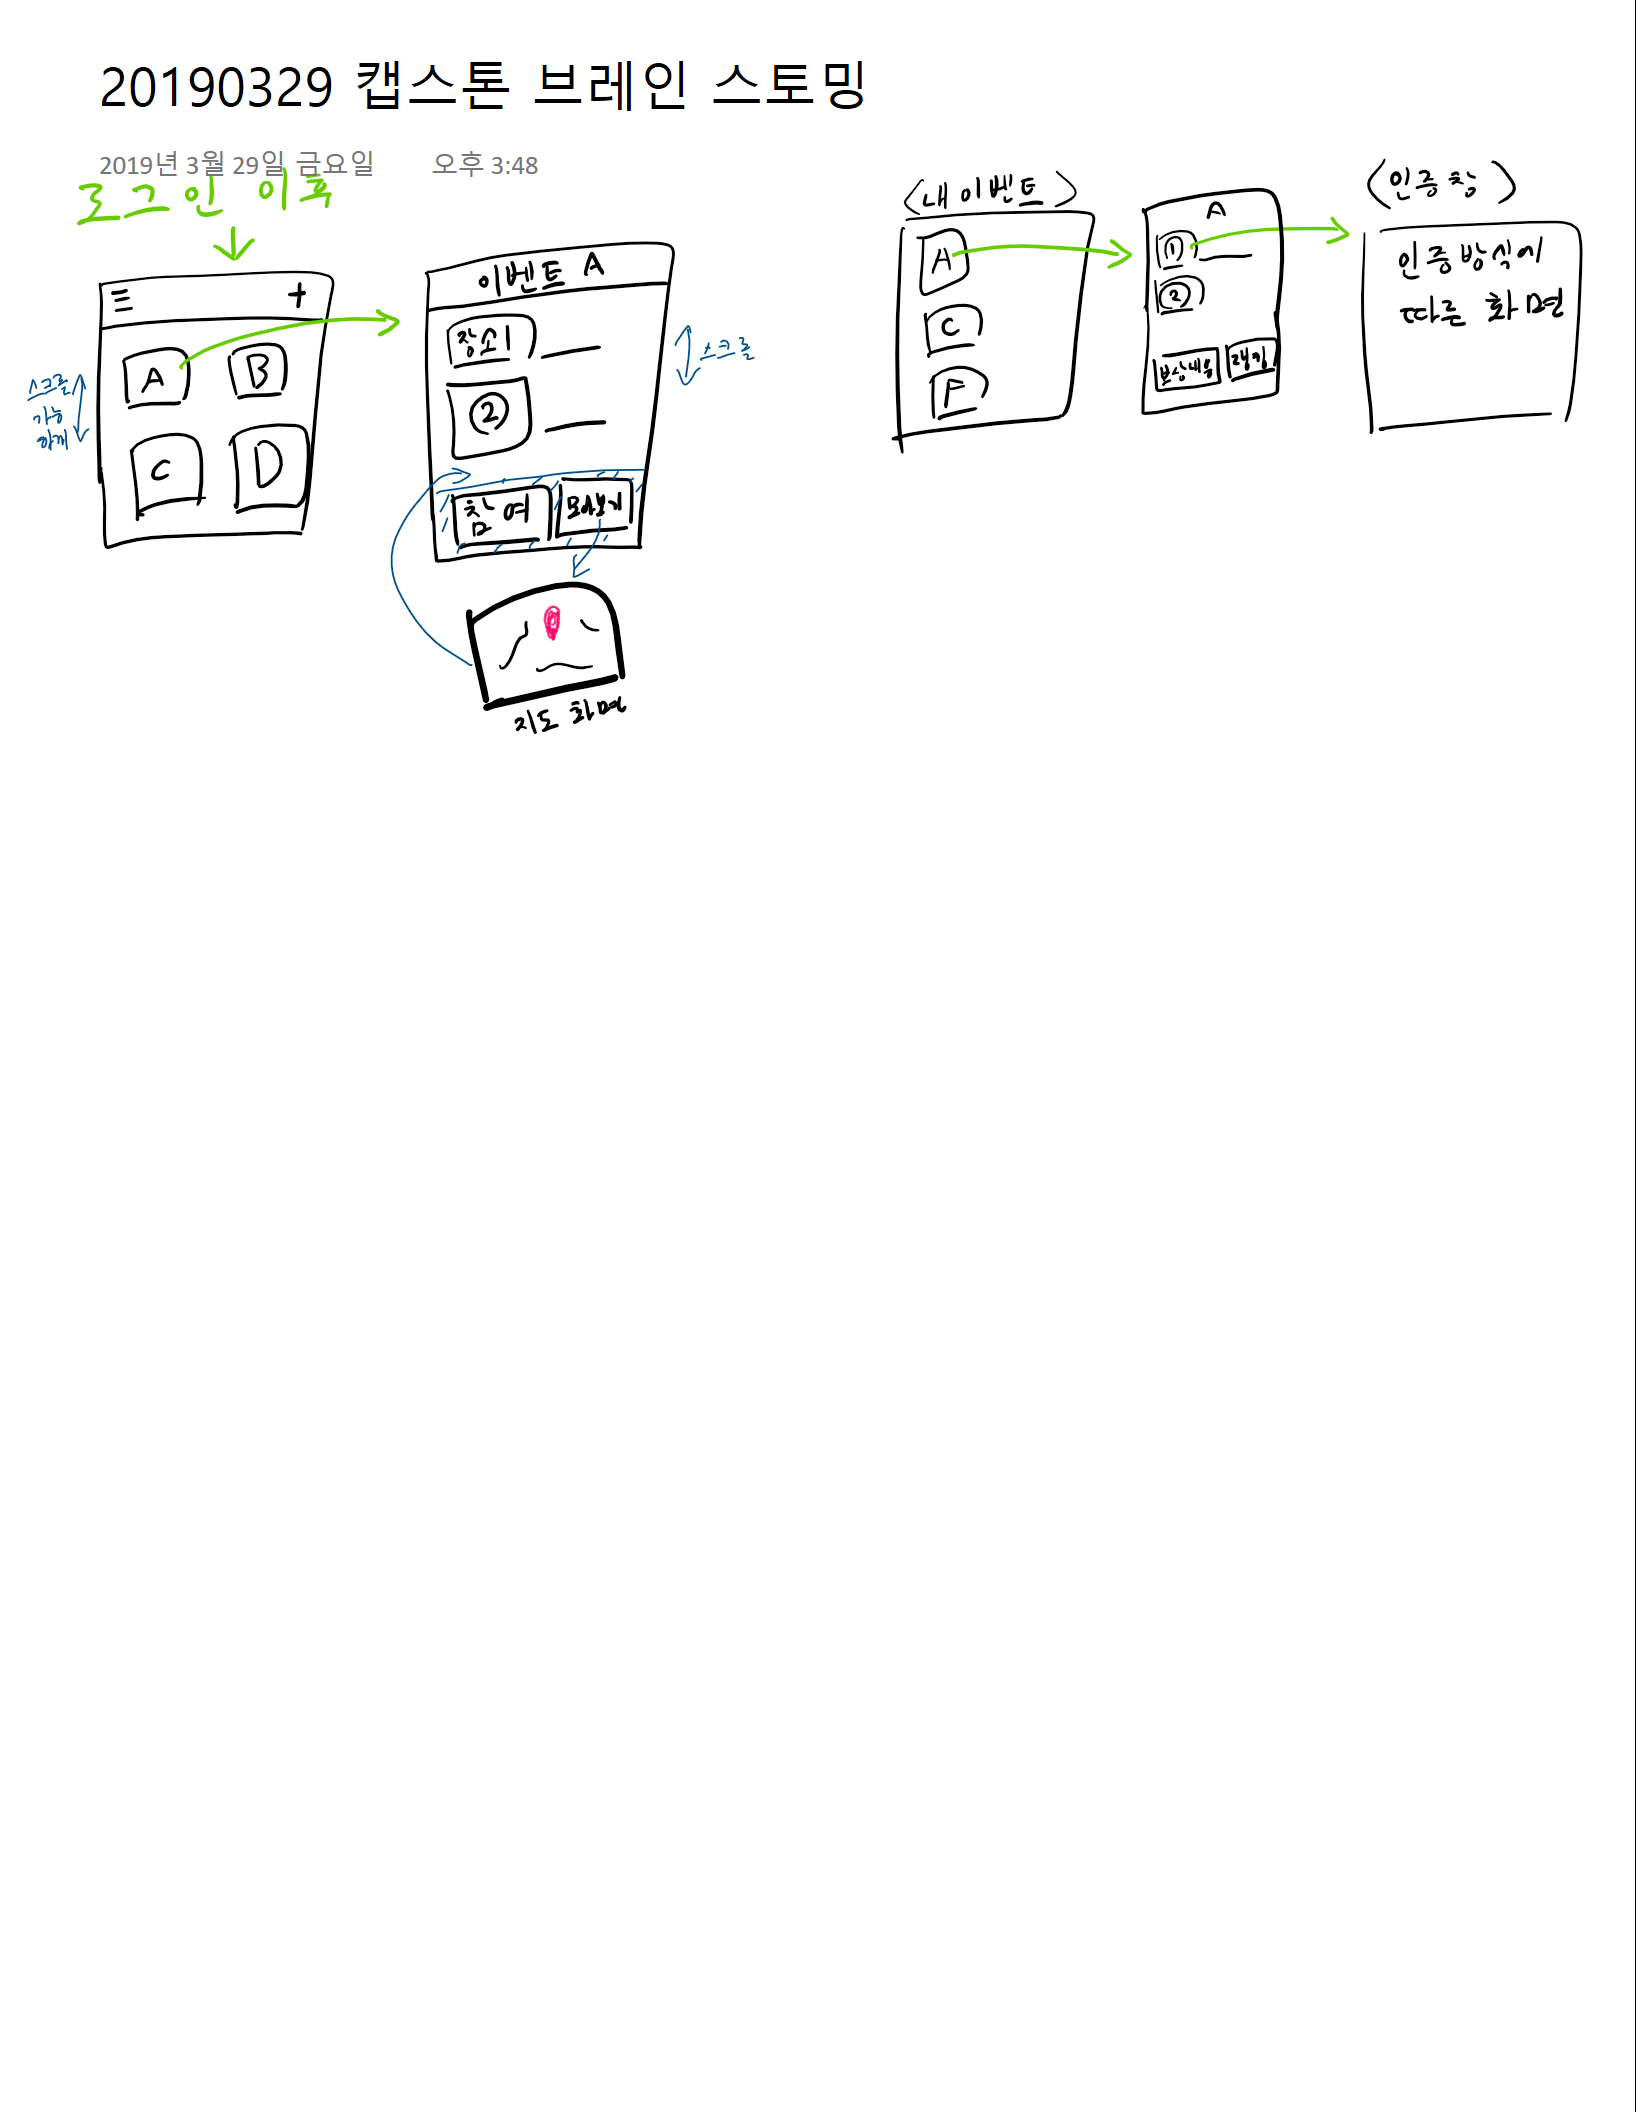 20190329 캡스톤 브레인 스토밍
2019년 3월 29일 금요일 오후 3:48
로그인 이후
+
A B
C D
스크롤
가능
하께
이벤트 A
장소1
②
참여 모아보기
스크롤
지도 화면
<내 이벤트>
A
C
F
A
①
②
보상내용 랭킹
<인증창>
인증방식에
따른 화면